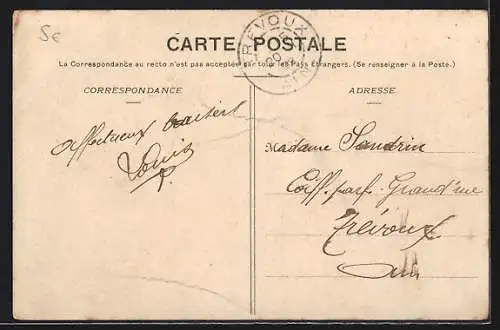 5€
TREVOUX
CARTE POSTALE
La Correspondance au recto n'est pas acceptée par tous les Pays Étrangers. (Se renseigner à la Poste.)
CORRESPONDANCE
affectueux baisers
Louis
ADRESSE
Madame Sandrin
Coiff. parf. Grand'rue
Trévoux
Ain